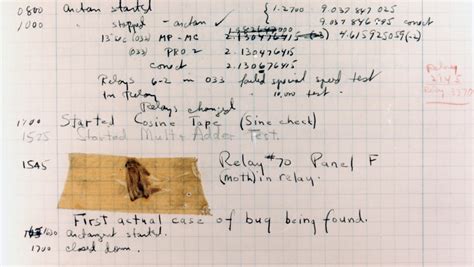 0800 Antan started { 1.2700 9.037 847 025
1000 " stopped - antan 9.037 846 995 correct
(032) MP - MC 2.130476415 (-3) 4.615925059(-2)
(033) PRO 2 2.130476415
correct 2.130676415
Relays 6-2 in 033 failed special speed test
In Relay " 10,000 test.
Relay
2145
Relay 3370
Relays changed
1100 Started Cosine Tape (Sine check)
1525 Started Mult + Adder Test.
1545 Relay #70 Panel F
(moth) in relay.
First actual case of bug being found.
1630 antangent started.
1700 closed down.